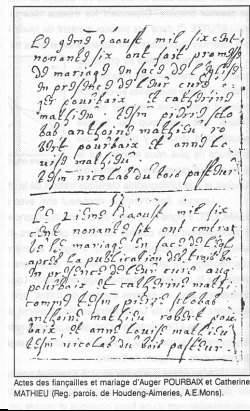 Le 9eme d'aoust mil six cent
nonante six ont fait promesse
de mariage en face de l'eglise
en presence de leur curé
pourbaix et catherine
mathieu tesm pierre
anthoine mathieu ro
bert pourbaix et anne lo
uise mathieu
tesm nicolas du bois pasteur
Le 21eme d'aoust mil six
cent nonante six ont contra
te le mariage en face de
apres la publication des trois ba
en presence de leur curé aug
pourbaix et catherine mathi
comme tesm pierre
anthoine mathieu robert pour
baix et anne louise mathieu
tesm nicolas du bois pasteur
Actes des fiançailles et mariage d'Auger POURBAIX et Catherine
MATHIEU (Reg. parois. de Houdeng-Aimeries, A.E.Mons).